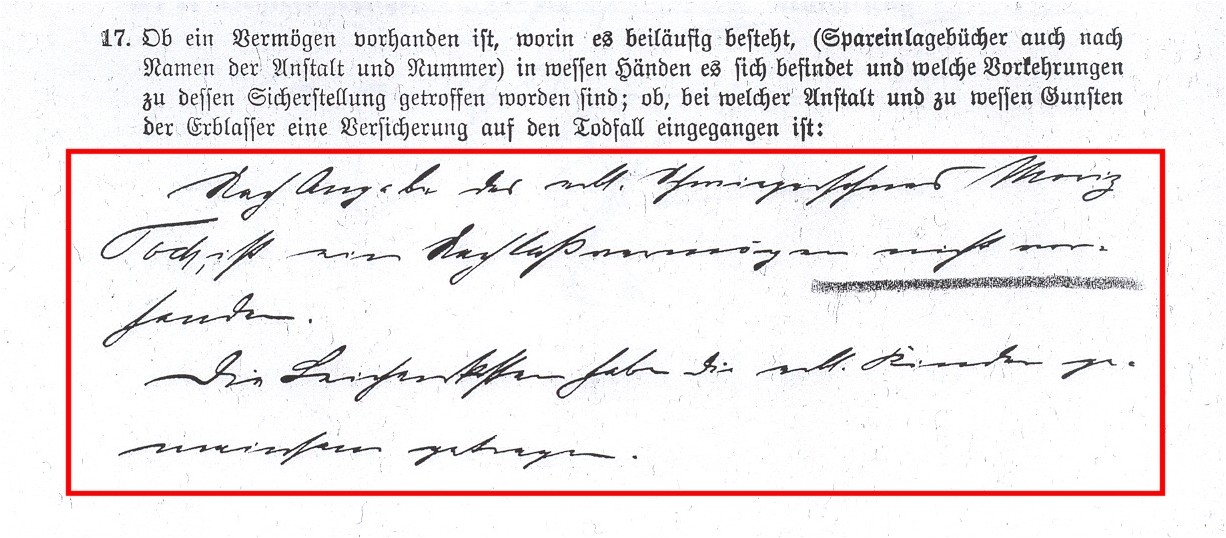 17. Ob ein Vermögen vorhanden ist, worin es beiläufig besteht, (Spareinlagebücher auch nach
Namen der Anstalt und Nummer) in wessen Händen es sich befindet und welche Vorkehrungen
zu dessen Sicherstellung getroffen worden sind; ob, bei welcher Anstalt und zu wessen Gunsten
der Erblasser eine Versicherung auf den Todfall eingegangen ist:
Nach Angabe des erbl. Schwiegersohnes Moriz
Toch, ist ein Nachlaßvermögen nicht vor-
handen.
Die Leichenkosten haben die erbl. Kinder ge-
meinsam getragen.